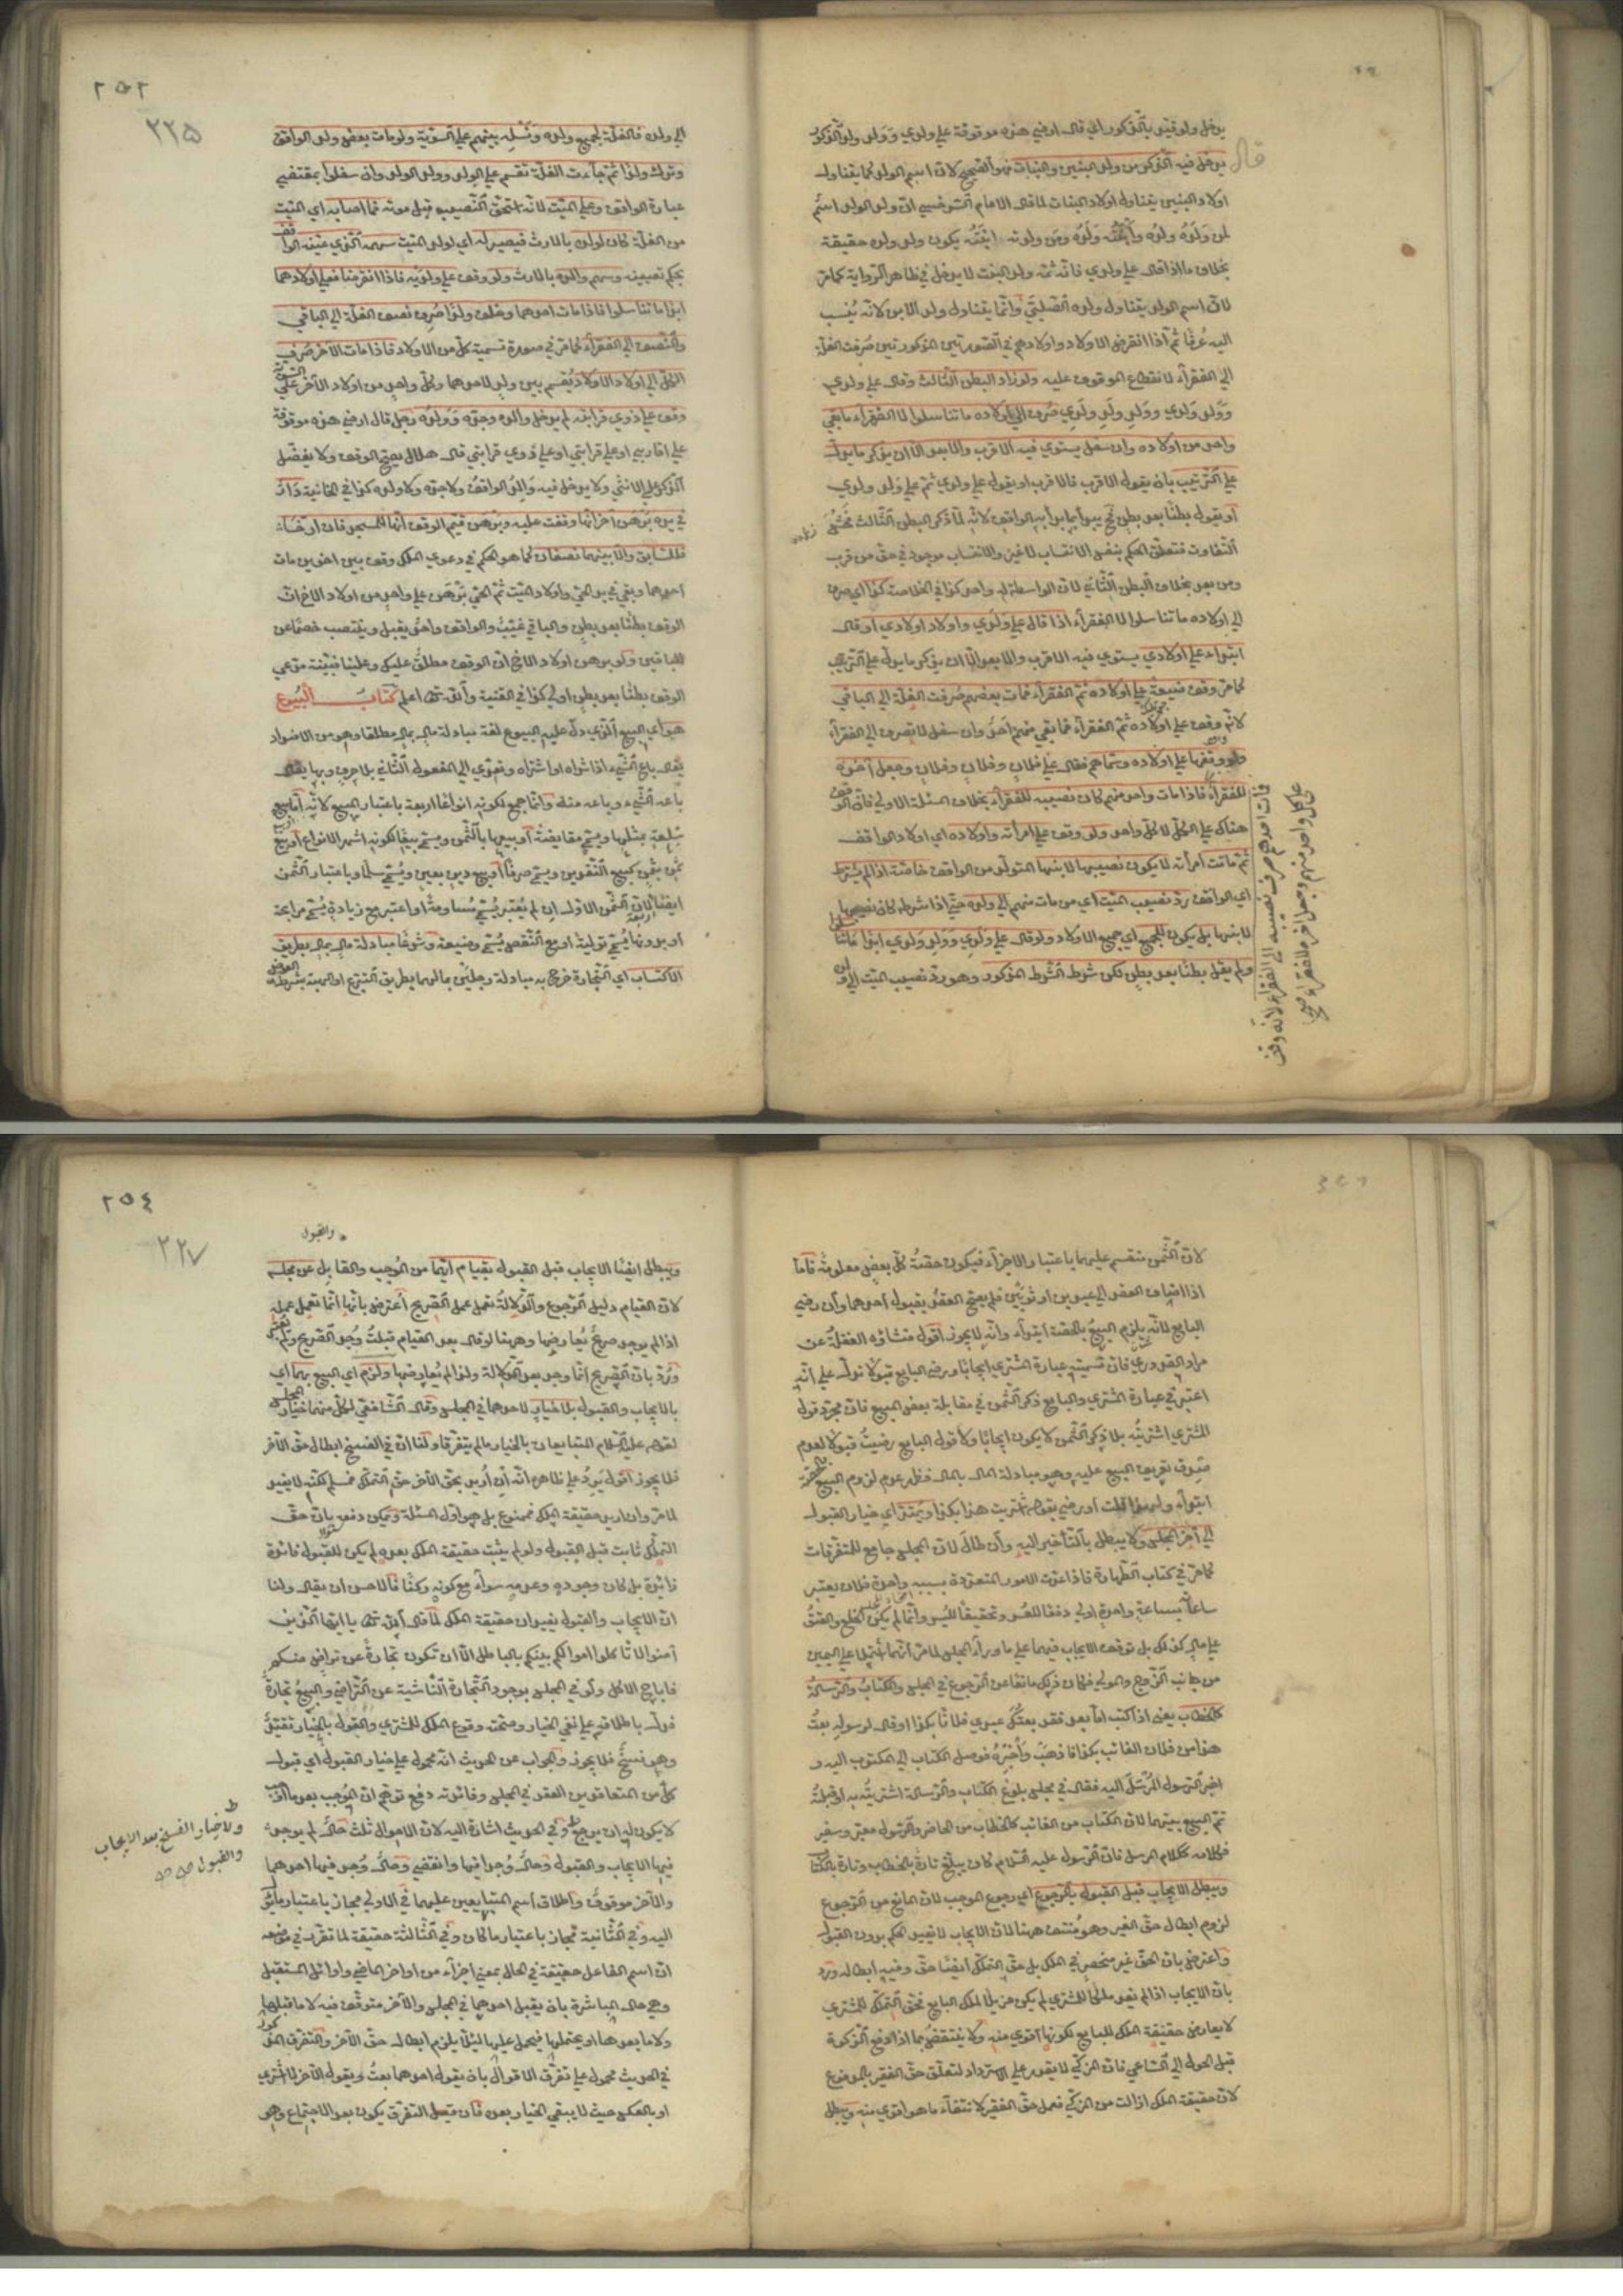 يدخل ولو قيد بالذكور اي قال ارضي هذه موقوفة على ولدي وولد ولدي الذكور
يدخل فيه الذكور من ولد البنين والبنات هو الصحيح لان اسم الولد كما يتناول
اولاد البنين يتناول اولاد البنات لما قال الامام السرخسي ان ولد الولد اسم
لمن ولده ولده وابنته ولده ومن ولدته ابنته يكون ولد ولده حقيقة
بخلاف ما اذا قال على ولدي فانه ثمه ولد البنت لا يدخل في ظاهر الرواية كما مر
لان اسم الولد يتناول ولده الصلبي وانما يتناول ولد الابن لانه ينسب
اليه عرفا ثم اذا انقرض الاولاد واولادهم في الصورتين المذكورتين صرفت الغلة
الى الفقراء لانقطاع الموقوف عليه ولو زاد البطن الثالث وقال على ولدي
وولد ولدي وولد ولد ولدي صرف الى اولاده ما تناسلوا لا الفقراء ما بقي
واحد من اولاده وان سفل يستوي فيه الاقرب والابعد الا ان يذكر ما يدل
على الترتيب بان يقول الاقرب فالاقرب او يقول على ولدي ثم على ولد ولدي
او يقول بطنا بعد بطن فح يبدأ بما بدأ به الواقف لانه لما ذكر البطن الثالث فحش
التفاوت فتعلق الحكم بنفس الانتساب لا غير والانتساب موجود في حق من قرب
ومن بعد بخلاف البطن الثاني لان الواسطة له واحد كذا في الخلاصة كذا اي صرف
الى اولاده ما تناسلوا لا الفقراء اذا قال على ولدي واولاد اولادي او قال
ابتداء على اولادي يستوي فيه الاقرب والابعد الا ان يذكر ما يدل على الترتيب
كما مر وقف ضيعة على اولاده ثم الفقراء فمات بعضهم صرفت الغلة الى الباقي
لانه وقف على اولاده ثم الفقراء فما بقي منهم احد وان سفل لا يصرف الى الفقراء
ولو وقفها على اولاده وسماهم فقال على فلان وفلان وفلان وجعل آخره
للفقراء فاذا مات واحد منهم كان نصيبه للفقراء بخلاف المسئلة الاولى فان الوقف
هناك على الكل لا كل واحد ولو وقف على امرأته واولاده اي اولاد الواقف
ثم ماتت امرأته لا يكون نصيبها لابنها المتولد من الواقف خاصة اذا لم يشترط
اي الواقف رد نصيب الميت اي من مات منهم الى ولده حتى اذا شرط كان نصيبها
لابنها بل يكون للجميع اي جميع الاولاد ولو قال على ولدي وولد ولدي ابدا ما تناسلوا
ولم يقل بطنا بعد بطن لكن شرط الشرط المذكور وهو رد نصيب الميت
٢٥٢
٢٢٥
الى ولده فالغلة لجميع ولده ونسله بينهم على السوية ولو مات بعض ولد الواقف
وترك ولدا ثم جاءت الغلة تقسم على الولد وولد الولد وان سفلوا بمقتضى
عبارة الواقف وعلى الميت لانه استحق النصيب قبل موته فما اصابه اي الميت
من الغلة كان لولده بالارث فيصير له اي لولد الميت سهمه الذي عينه الواقف
بحكم تعيينه وسهم والده بالارث ولو وقف على ولديه فاذا انقرضا فعلى اولادهما
ابدا ما تناسلوا فاذا مات احدهما وخلف ولدا صرف نصف الغلة الى الباقي
والنصف الى الفقراء كما مر في صورة تسمية كل من الاولاد فاذا مات الآخر صرف
الكل الى اولاد الاولاد يقسم بين ولد لاحدهما وكل واحد من اولاد الآخر على السوية
وقف على ذوي قرابته لم يدخل والده وجده وولده رجل قال ارضي هذه موقوفة
على اقاربي او على قرابتي او على ذوي قرابتي قال هلال يصح الوقف ولا يفضل
الذكر على الانثى ولا يدخل فيه والد الواقف ولا جده ولا ولده كذا في الخانية دار
في يده برهن آخر انها وقفت عليه وبرهن قيم الوقف انها للمسجد فان ارخا
فللسابق والا بينهما نصفان كما هو الحكم في دعوى الملك وقف بين اخوين مات
احدهما وبقي في يد الحي واولاد الميت ثم الحي برهن على واحد من اولاد الاخ ان
الوقف بطنا بعد بطن والباقي غيب والواقف واحد يقبل وينتصب خصما عن
الباقين ولو برهن اولاد الاخ ان الوقف مطلق عليك وعلينا فبينة مدعي
الوقف بطنا بعد بطن اولى كذا في القنية والله تعالى اعلم كتاب البيوع
هو اي البيع الذي دل عليه البيوع لغة مبادلة مال بمال مطلقا وهو من الاضداد
يقال باع الشيء اذا شراه او اشتراه ويعدى الى المفعول الثاني بلا حرف وبها يقال
باعه الشيء وباعه منه وانما جمع لكونه انواعا اربعة باعتبار المبيع لانه اما بيع
سلعة بمثلها ويسمى مقايضة او بيعها بالثمن ويسمى بيعا لكونه اشهر الانواع او بيع
ثمن بثمن كبيع النقدين ويسمى صرفا او بيع دين بعين ويسمى سلما وباعتبار الثمن
ايضا اربعة لان الثمن الاول ان لم يعتبر يسمى مساومة او اعتبر مع زيادة يسمى مرابحة
او بدونها يسمى تولية او مع النقص يسمى وضيعة وشرعا مبادلة مال بمال بطريق
الاكتساب اي التجارة خرج به مبادلة رجلين بمالهما بطريق التبرع او الهبة بشرط العوض
لان الثمن ينقسم عليهما باعتبار الاجزاء فيكون حصة كل بعض معلومة فاما
اذا اضاف العقد الى عبدين او ثوبين فلم يصح العقد بقبول احدهما وان رضي
البايع لانه يلزم البيع بالحصة ابتداء وانه لا يجوز اقول منشاؤه الغفلة عن
مراد القدوري فان تسميته عبارة المشتري ايجابا ورضى البايع قبولا تدل على انه
اعتبر في عبارة المشتري والبايع ذكر الثمن في مقابلة بعض المبيع فان مجرد قول
المشتري اشتريته بلا ذكر الثمن لا يكون ايجابا ولا قول البايع رضيت قبولا لعدم
صدق تعريف البيع عليه وهو مبادلة المال بالمال فظهر عدم لزوم البيع بالحصة
الى آخر المجلس ولا يبطل بالتأخير اليه وان طال لان المجلس جامع للمتفرقات
كما مر في كتاب الطهارة فاذا اعتبرت الامور المتعددة بسببه واحدة فلان يعتبر
ساعاته ساعة واحدة اولى دفعا للعسر وتحقيقا لليسر وانما لم يكن الخلع والعتق
على مال كذلك بل توقف الايجاب فيهما على ما وراء المجلس لما مر انهما اشتملا على اليمين
من جانب الزوج والمولى فكان ذلك مانعا عن الرجوع في المجلس والكتاب والرسالة
كالخطاب يعني اذا كتب اما بعد فقد بعتك عبدي فلانا بكذا او قال لرسوله بعت
هذا من فلان الغائب بكذا فاذهب واخبره فوصل الكتاب الى المكتوب اليه و
اخبر الرسول المرسل اليه فقال في مجلس بلوغ الكتاب والرسالة اشتريته به او قبلته
تم البيع بينهما لان الكتاب من الغائب كالخطاب من الحاضر والرسول معبر وسفير
فكلامه ككلام المرسل فان الرسول عليه السلام كان يبلغ تارة بالخطاب وتارة بالكتاب
ويبطل الايجاب قبل القبول بالرجوع اي رجوع الموجب لان المانع من الرجوع
لزوم ابطال حق الغير وهو منتف ههنا لان الايجاب لا يفيد الحكم بدون القبول
واعترض بان الحق غير منحصر في الملك بل حق التملك ايضا حق وفيه ابطاله ورد
بان الايجاب اذا لم يفد ملكا للمشتري لم يكن مزيلا لملك البايع فحق التملك للمشتري
لا يعارض حقيقة الملك للبايع لكونها اقوى منه ولا ينتقض بما اذا دفع الزكوة
قبل الحول الى الساعي فان المزكي لا يقدر على الاسترداد لتعلق حق الفقير بالمدفوع
لان حقيقة الملك زالت من المزكي فعمل حق الفقير لانتفاء ما هو اقوى منه ويبطل
٢٥٤
٢٢٧
والقبول
ويبطل ايضا الايجاب قبل القبول بقيام ايهما من الموجب والقابل عن مجلسه
لان القيام دليل الرجوع والدلالة تعمل عمل الصريح اعترض بانها انما تعمل عمله
اذا لم يوجد صريح يعارضها وههنا لو قال بعد القيام قبلت وجد الصريح
ورد بان الصريح انما وجد بعد الدلالة ولذا لم يعارضها ولزم اي البيع بهما اي
بالايجاب والقبول بلا خيار لاحدهما في المجلس وقال الشافعي لكل منهما خيار المجلس
لقوله عليه السلام المتبايعان بالخيار ما لم يتفرقا ولنا ان في الفسخ ابطال حق الآخر
فلا يجوز اقول يرد على ظاهره انه ان اريد بحق الآخر حق التملك فمسلم لكنه لا يفيد
لما مر وان اريد حقيقة الملك فممنوع بل هو اول المسئلة ويمكن دفعه بان حق
التملك ثابت قبل القبول ولو لم يثبت حقيقة الملك بعده لم يكن للقبول فائدة
زائدة بل كان وجوده وعدمه سواء مع كونه ركنا فالاحسن ان يقال ولنا
ان الايجاب والقبول يفيدان حقيقة الملك لما قال الله تعالى يا ايها الذين
آمنوا لا تأكلوا اموالكم بينكم بالباطل الا ان تكون تجارة عن تراض منكم
فاباح الاكل ولو في المجلس بوجود التجارة الناشية عن التراضي والبيع تجارة
فدل باطلاقه على نفي الخيار وصحة وقوع الملك للمشتري والقول بالخيار تقييد
وهو نسخ فلا يجوز والجواب عن الحديث انه محمول على خيار القبول اي قبول
كل من المتعاقدين العقد في المجلس وفائدته دفع توهم ان الموجب بعد ما اوجب
لا يكون له ان يرجع وفي الحديث اشارة اليه لان الاحوال ثلث حال لم يوجد
فيها الايجاب والقبول وحال وجدا فيها وانقضى وحال وجد فيها احدهما
والآخر موقوف واطلاق اسم المتبايعين عليهما في الاولى مجاز باعتبار ما يؤول
اليه وفي الثانية مجاز باعتبار ما كان وفي الثالثة حقيقة لما تقرر في موضعه
ان اسم الفاعل حقيقة في الحال بمعنى اجزاء من اواخر الماضي واوائل المستقبل
وهي حال المباشرة بان يقبل احدهما في المجلس والآخر متوقف فيه لا ما قبلها
ولا ما بعدها او يحتملها فيحمل عليها لئلا يلزم ابطال حق الآخر والتفرق المذكور
في الحديث محمول على تفرق الاقوال بان يقول احدهما بعت ويقول الآخر لا اشتري
او بالعكس حيث لا يبقى الخيار بعده فان قيل التفرق يكون بعد الاجتماع وهو
ولا خيار الفسخ بعد الايجاب
والقبول